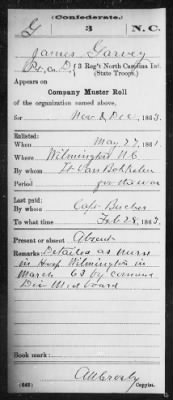 (Confederate.)
G 3 N.C.
James Garvey
Pvt, Co. D, 3 Reg't North Carolina Inf.
(State Troops.)
Appears on
Company Muster Roll
of the organization named above,
for Nov & Dec, 1863.
Enlisted:
When May 27, 1861
Where Wilmington N.C.
By whom Lt Van Bokkelen
Period for the war
Last paid:
By whom Capt
To what time Feb 28, 1863.
Present or absent Absent
Remarks: Detailed as nurse
in Hosp Wilmington in
March 63 by
Med board
Book mark:
(642) Copyist.